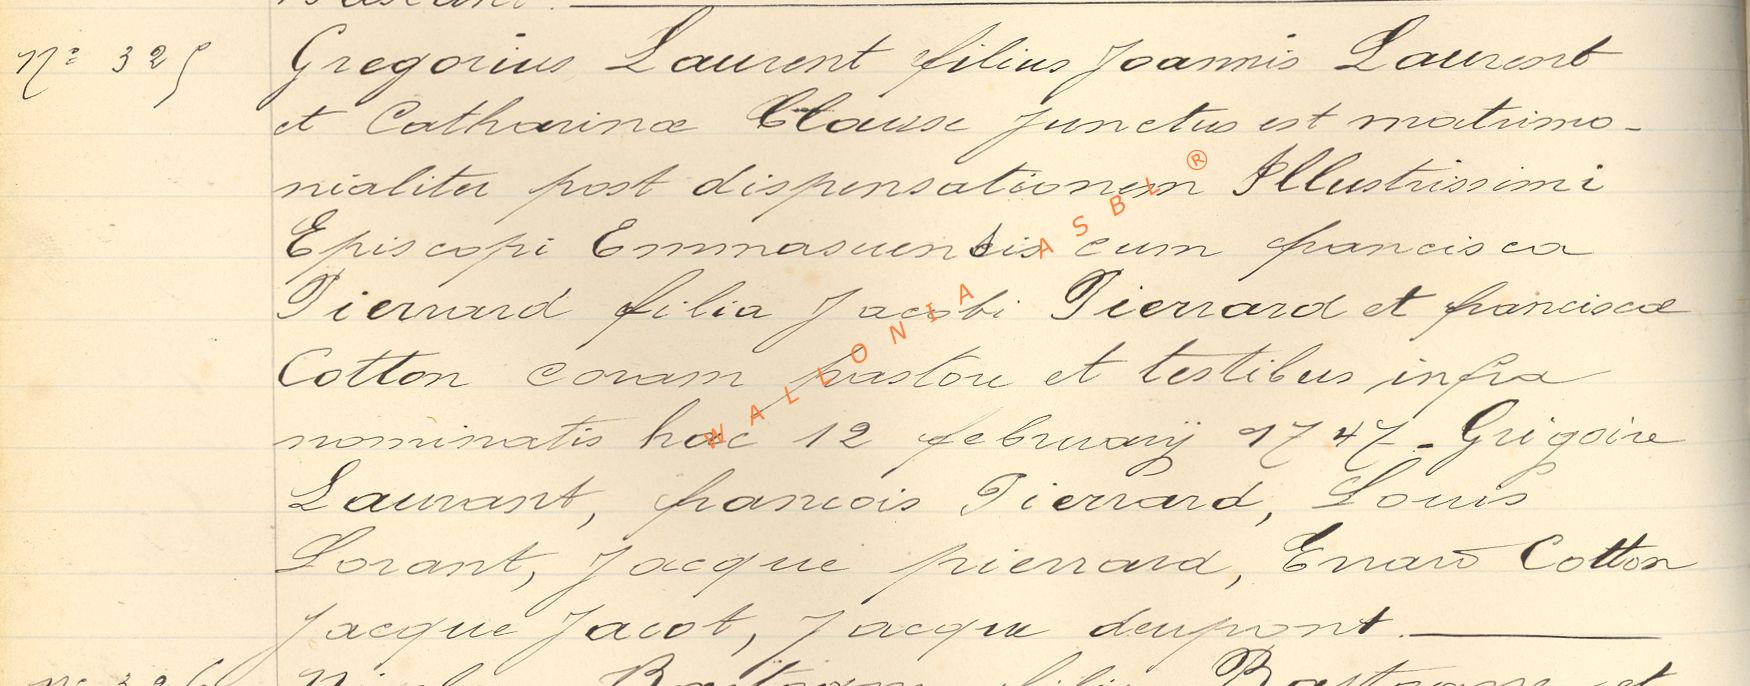 Nº 325
Gregorius Laurent filius Joannis Laurent
et Catharinæ Clause junctus est matrimo-
nialiter post dispensationem Illustrissimi
Episcopi Emmasuensis cum francisca
Pierrard filia Jacobi Pierrard et franciscæ
Cotton coram pastore et testibus infra
nominatis hac 12 februarÿ 1747 - Grigoire
Laurant, francois Pierrard, Louis
Lorant, Jacque pierrard, Errard Cotton
Jacque Jacot, Jacque deupont.
WALLONIA ASBL ®